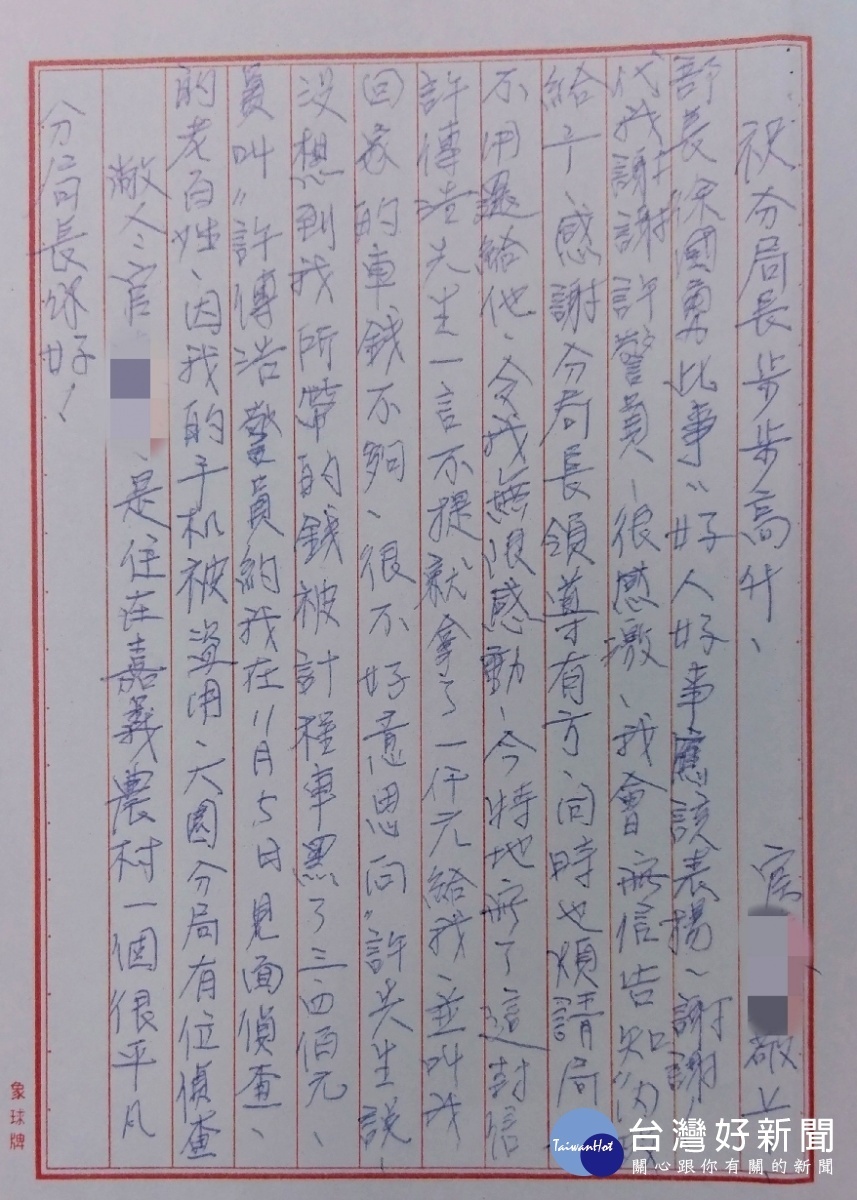 分局長你好!
敝人:官、是住在嘉義農村一個很平凡
的老百姓、因我的手机被盜用、大園分局有位偵查
員叫"許傳浩警員約我在11月5日見面偵查、
沒想到我所帶的錢被計程車黑了三四佰元、
回家的車錢不夠、很不好意思向"許先生說、
許傳浩先生一言不提就拿了一仟元給我、並叫我
不用還給他、令我無限感動、今特地寫了這封信
給了、感謝分局長領導有方、同時也煩請局
代我謝謝許警員、很感激、我會寫信告知"內
部長徐國勇比事"好人好事應該表揚、謝謝!
祝分局長步步高升、
官敬上
象球牌
TaiwanHot
台灣好新聞
關心跟你有關的新聞